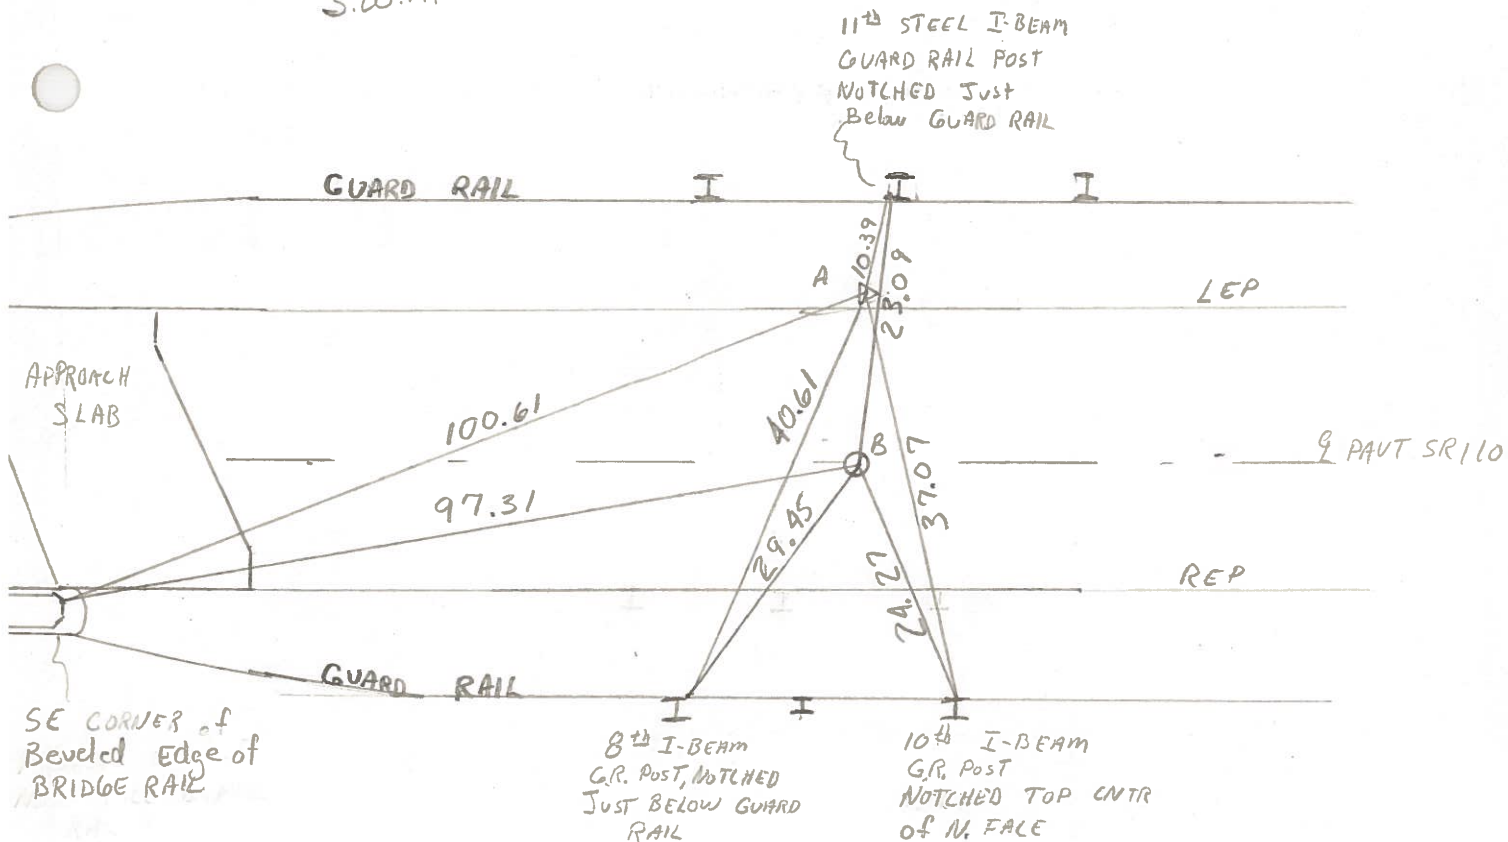 11th STEEL I-BEAM
GUARD RAIL POST
NOTCHED JUST
Below GUARD RAIL
GUARD RAIL
A
10.39
23.09
LEP
APPROACH
SLAB
100.61
40.61
B
37.07
℄ PAVT SR110
97.31
29.45
24.27
REP
GUARD RAIL
SE CORNER of
Beveled Edge of
BRIDGE RAIL
8th I-BEAM
G.R. POST, NOTCHED
JUST BELOW GUARD
RAIL
10th I-BEAM
G.R. POST
NOTCHED TOP CNTR
of N. FACE